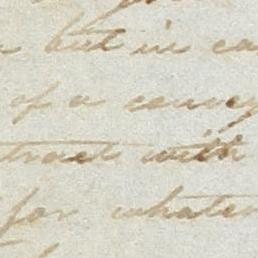 but in
of a convey
tract with
for whate